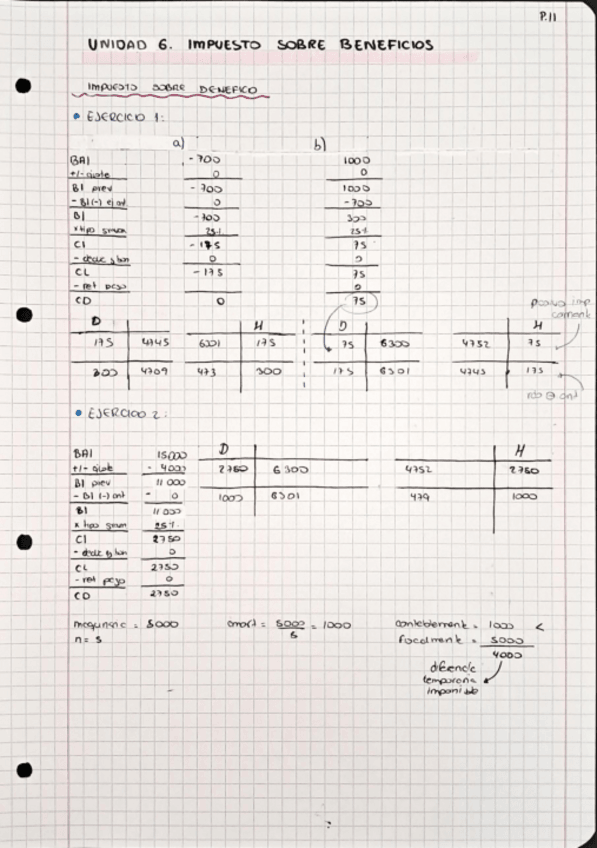 P.11
UNIDAD 6. IMPUESTO SOBRE BENEFICIOS
IMPUESTO SOBRE BENEFICO
• EJERCICIO 1:
a) b)
BAI -700 1000
+/- ajuste 0 0
BI prev -700 1000
- BI(-) ej ant 0 -700
BI -700 300
x tipo gravam 25% 25%
CI -175 75
- deduc y bon 0 0
CL -175 75
- ret pcso 0
CD 0 75
D H D H
175 4745 6301 175 75 6300 4752 75
300 4709 473 300 175 6301 4745 175
pasivo imp
corriente
rdo ⊖ ant
• EJERCICIO 2:
BAI 15000
+/- ajuste - 4000
BI prev 11 000
- BI (-) ant - 0
BI 11 000
x tipo gravam 25%
CI 2750
- deduc y bon 0
CL 2750
- ret pcso 0
CD 2750
D H
2750 6300 4752 2750
1000 6301 479 1000
maquinaria = 5000 amort = 5000/5 = 1000 contablemente = 1000 <
n = 5 fiscalmente = 5000
4000
diferencia
temporaria
imponible